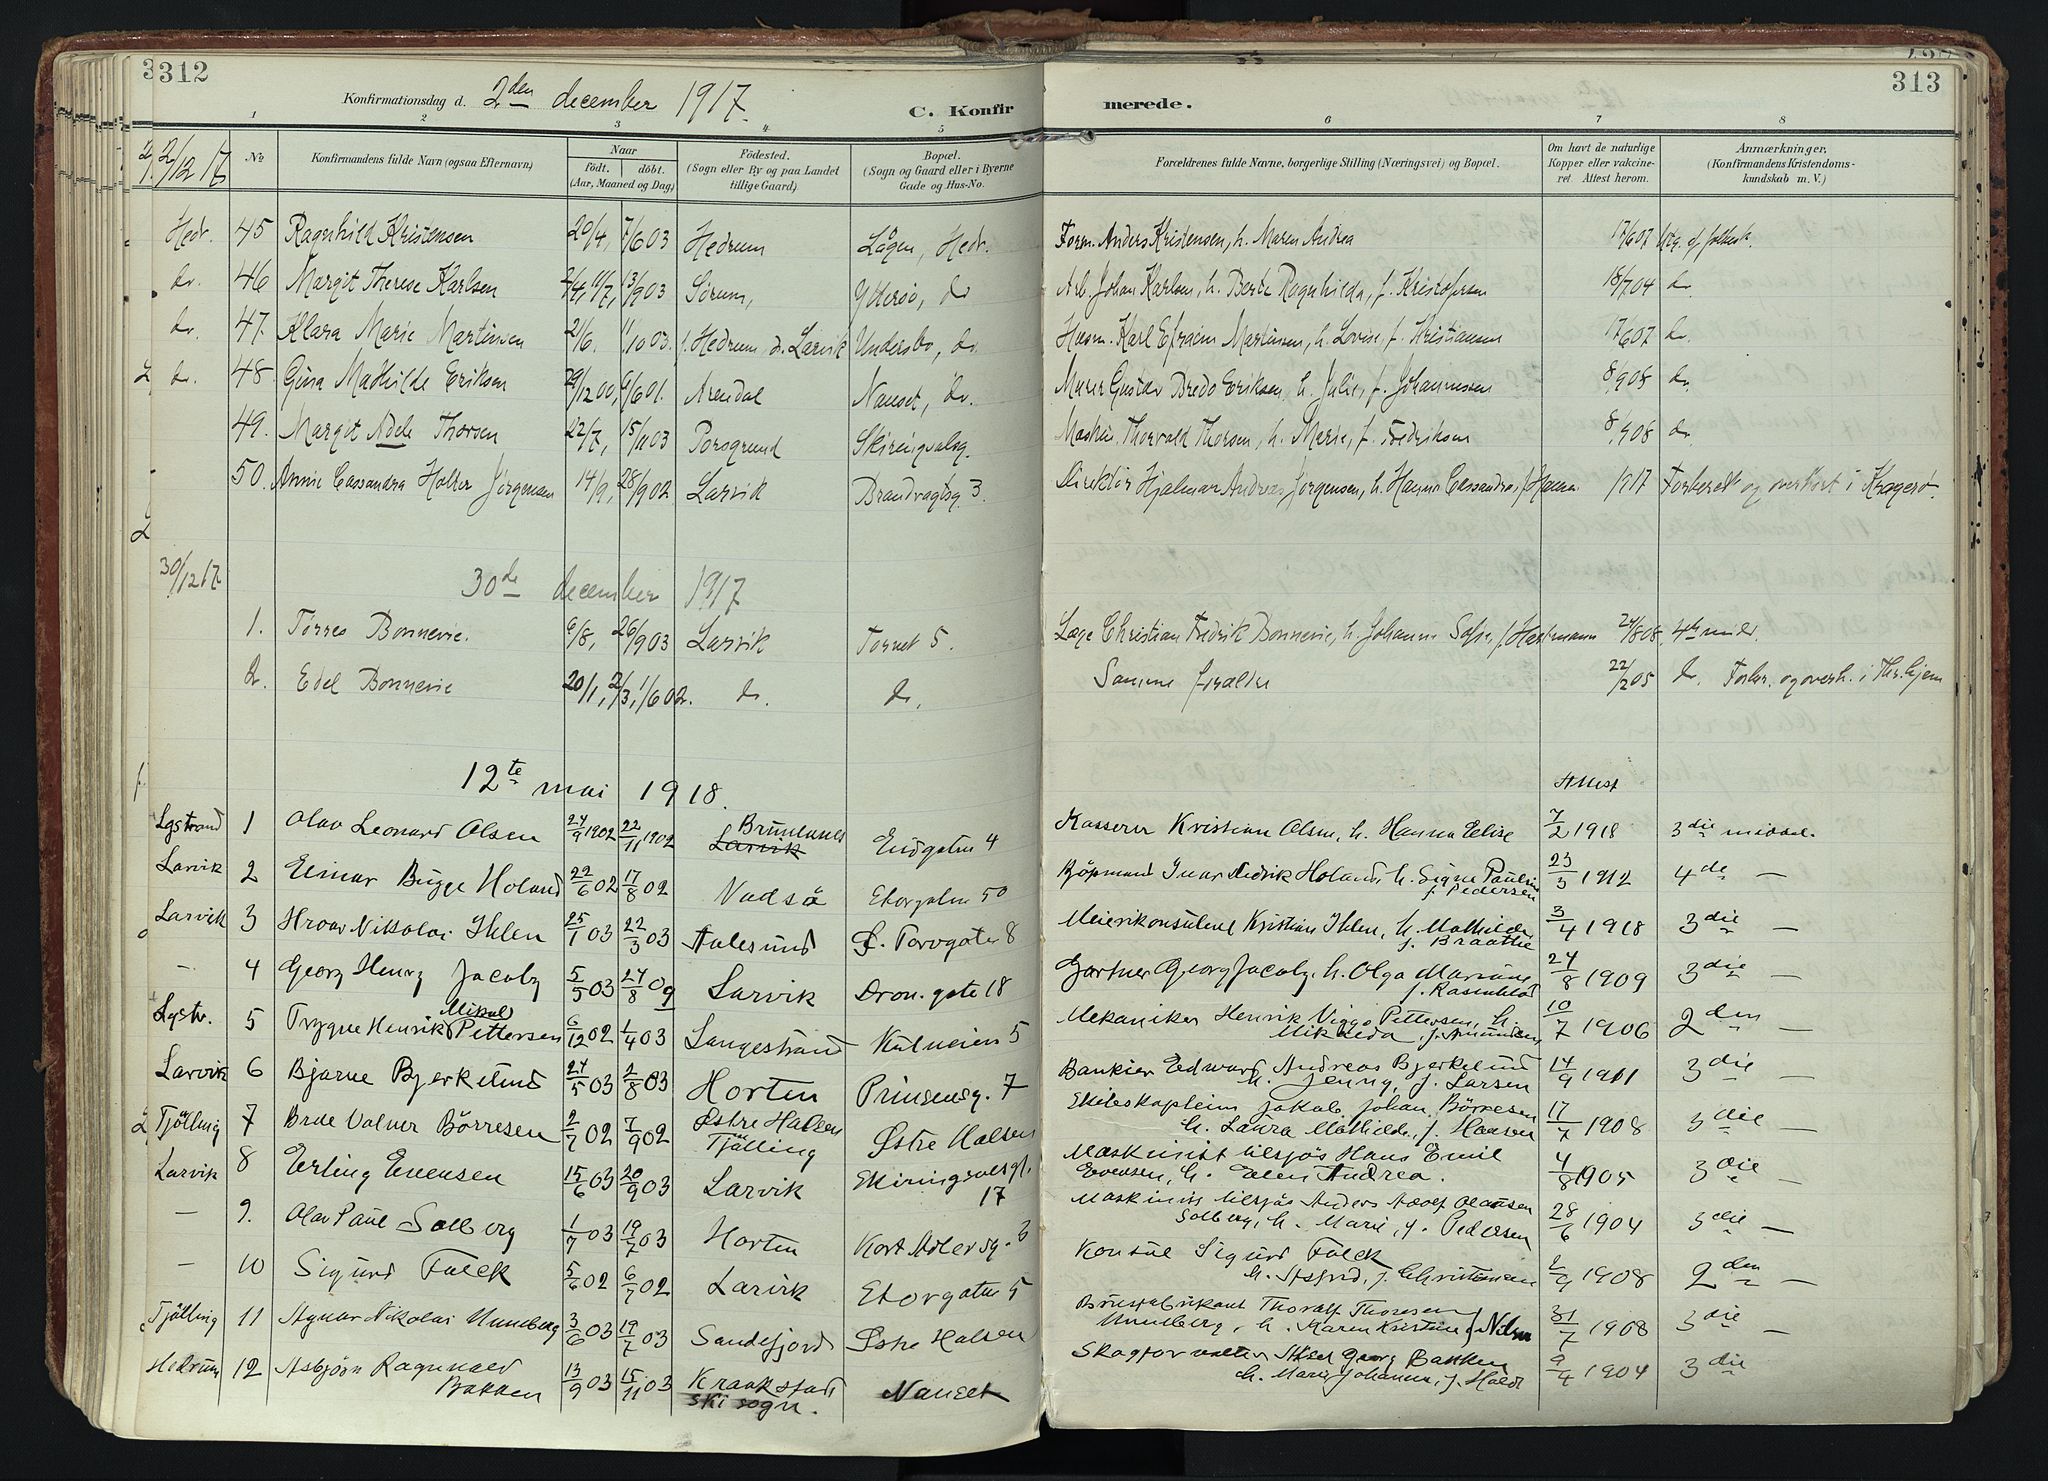 312
313
Konfirmationsdag d. 2den december 1917.
C. Konfirmerede.
1 2 3 4 5 6 7 8
2/12 17
No
Konfirmandens fulde Navn (ogsaa Efternavn)
Naar
født. døbt.
(Aar, Maaned og Dag)
Fødested.
(Sogn eller By og paa Landet
tillige Gaard)
Bopæl.
(Sogn og Gaard eller i Byerne
Gade og Hus-No.
Forældrenes fulde Navne, borgerlige Stilling (Næringsvei) og Bopæl.
Om havt de naturlige
Kopper eller vaccine-
ret Attest herom.
Anmærkninger.
(Konfirmandens Kristendoms-
kundskab m. V.)
Hedr. 45 Ragnhild Kristensen 20/4, 7/6 03 Hedrum Lågen, Hedr. Form. Anders Kristensen, h. Maren Andrea 17/6 07
do. 46 Margit Therese Karlsen 13/9 03 Sørum, Yttersø, do Arb. Johan Karlsen, h. Berte Ragnhilda, f. Kristofersen 18/7 04 do.
do. 47. Klara Marie Martinsen 21/6. 11/10 03. Hedrum, Larvik Undersbo, do. Husm. Karl Efraim Martinsen, h. Lovise, f. Kristiansen 17/6 07 do.
do. 48. Gina Mathilde Eriksen 29/12 00, 9/6 01. Arendal Nanset, do. Murer Gustav Bredo Eriksen, h. Julie, f. Johannessen 8/9 08 do.
49. Margit Adele Thorsen 22/7, 15/11 03 Porsgrund Skiringsalsg. Maskin. Thorvald Thorsen, h. Marie, f. Fredriksen 8/9 08 do.
50. Annie Cassandra Holter Jørgensen 14/9, 28/9 02. Larvik Brandvagtsg. 3. Direktør Hjalmar Andreas Jørgensen, h. Hanna Cassandra, f. 1917 Forberedt og overhørt i Kragerø.
30/12 17.
30de december 1917
1. Torres Bonnevie. 6/8, 26/9 03 Larvik Torvet 5. Læge Christian Fredrik Bonnevie, h. Johanne Sofie, f. Hartmann 24/8 08. 4de
2. Edel Bonnevie 20/1, 2/3, 1/6 02. do. do. Samme forældre 22/2 05 do. Forber. og overh. i Thr.hjem
12te mai 1918.
Attest
Lgstrand 1 Olav Leonard Olsen 24/9 1902 22/11 1902 Brunlanes Larvik Endgaten 4 Kasserer Kristian Olsen, h. Hanna Elise 7/2 1918 3die middel.
Larvik 2 Einar Bugge Holand 22/6 02 17/8 02 Vadsö Etorgaten 50 Kjöpmand Ivar Didrik Holand, h. Signe Pauline
f. Pedersen 23/5 1912 4de —
Larvik 3 Hroar Nikolai Ihlen 25/1 03 22/3 03 Aalesund S. Torvgaten 8 Meierikonsulent Kristian Ihlen, h. Mathilde,
f. Braathe 3/4 1918 3die —
— 4 Georg Henry Jacoby 5/5 03 24/8 09 Larvik Dron. gate 18 Gartner Georg Jacoby, h. Olga Marianne
f. Rosenblad 24/8 1909 3die —
Lgstr. 5 Trygve Henrik Mikal Pettersen 6/12 02 1/4 03 Langestrand Kulveien 5 Mekaniker Henrik Viggo Pettersen, h.
Mikalda, f. Amundsen 10/7 1906 2den —
Larvik 6 Bjarne Bjerkelund 24/5 03 2/8 03 Horten Prinsensg. 7 Bankier Edward Andreas Bjerkelund
h. Jenny, f. Larsen 14/9 1911 3die —
Tjölling 7 Brde Valner Börresen 2/7 02 7/9 02 Østre Halsen
Tjölling Østre Halsen Skibskaptein Jakob Johan Börresen
h. Laura Mathilde, f. Hansen 17/7 1908 3die —
Larvik 8 Erling Evensen 15/6 03 20/9 03 Larvik Skiringsalsgt.
17 Maskinist tilsjös Hans Emil
Evensen, h. Elen Andrea. 4/8 1905 3die —
— 9. Olav Paul Solberg 1/7 03 19/7 03 Horten Kort Adlersg. 3 Maskinist tilsjös Anders Adolf Olausen
Solberg, h. Marie, f. Pedersen 28/6 1904 3die —
— 10 Sigurd Falck 5/6 02 6/7 02 Larvik Etorgaten 5 Konsul Sigurd Falck
h. Astrid, f. Christensen 2/9 1908 2den —
Tjölling 11 Agnar Nikolai Unneberg 3/6 03 19/7 03 Sandefjord Østre Halsen Brusfabrikant Thoralf Thoresen
Unneberg, h. Karen Kristine f. Nilsen 31/7 1908 3die —
Hedrum 12 Asbjørn Ragnvald
Bakken 13/9 03 15/11 03 Kraakstad
Ski sogn. Nanset Skogforvalter Aksel Georg Bakken
h. Marie Johanne, f. Holdt 9/4 1904 3die